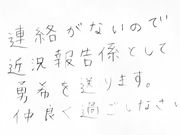 連絡がないので
近況報告係として
勇希を送ります。
仲良く過ごしなさい